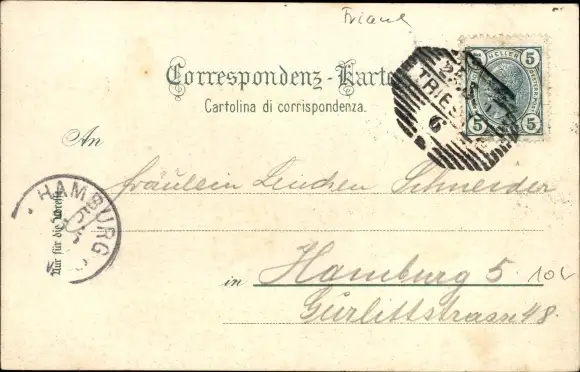 Triest
Correspondenz-Karte
Cartolina di corrispondenza.
5 HELLER 5
5 5
TRIES
6
An
fräulein Lenchen Schneider
HAMBURG
Nur für die Adresse
in Hamburg 5. 10
Gurlittstrasse 48.